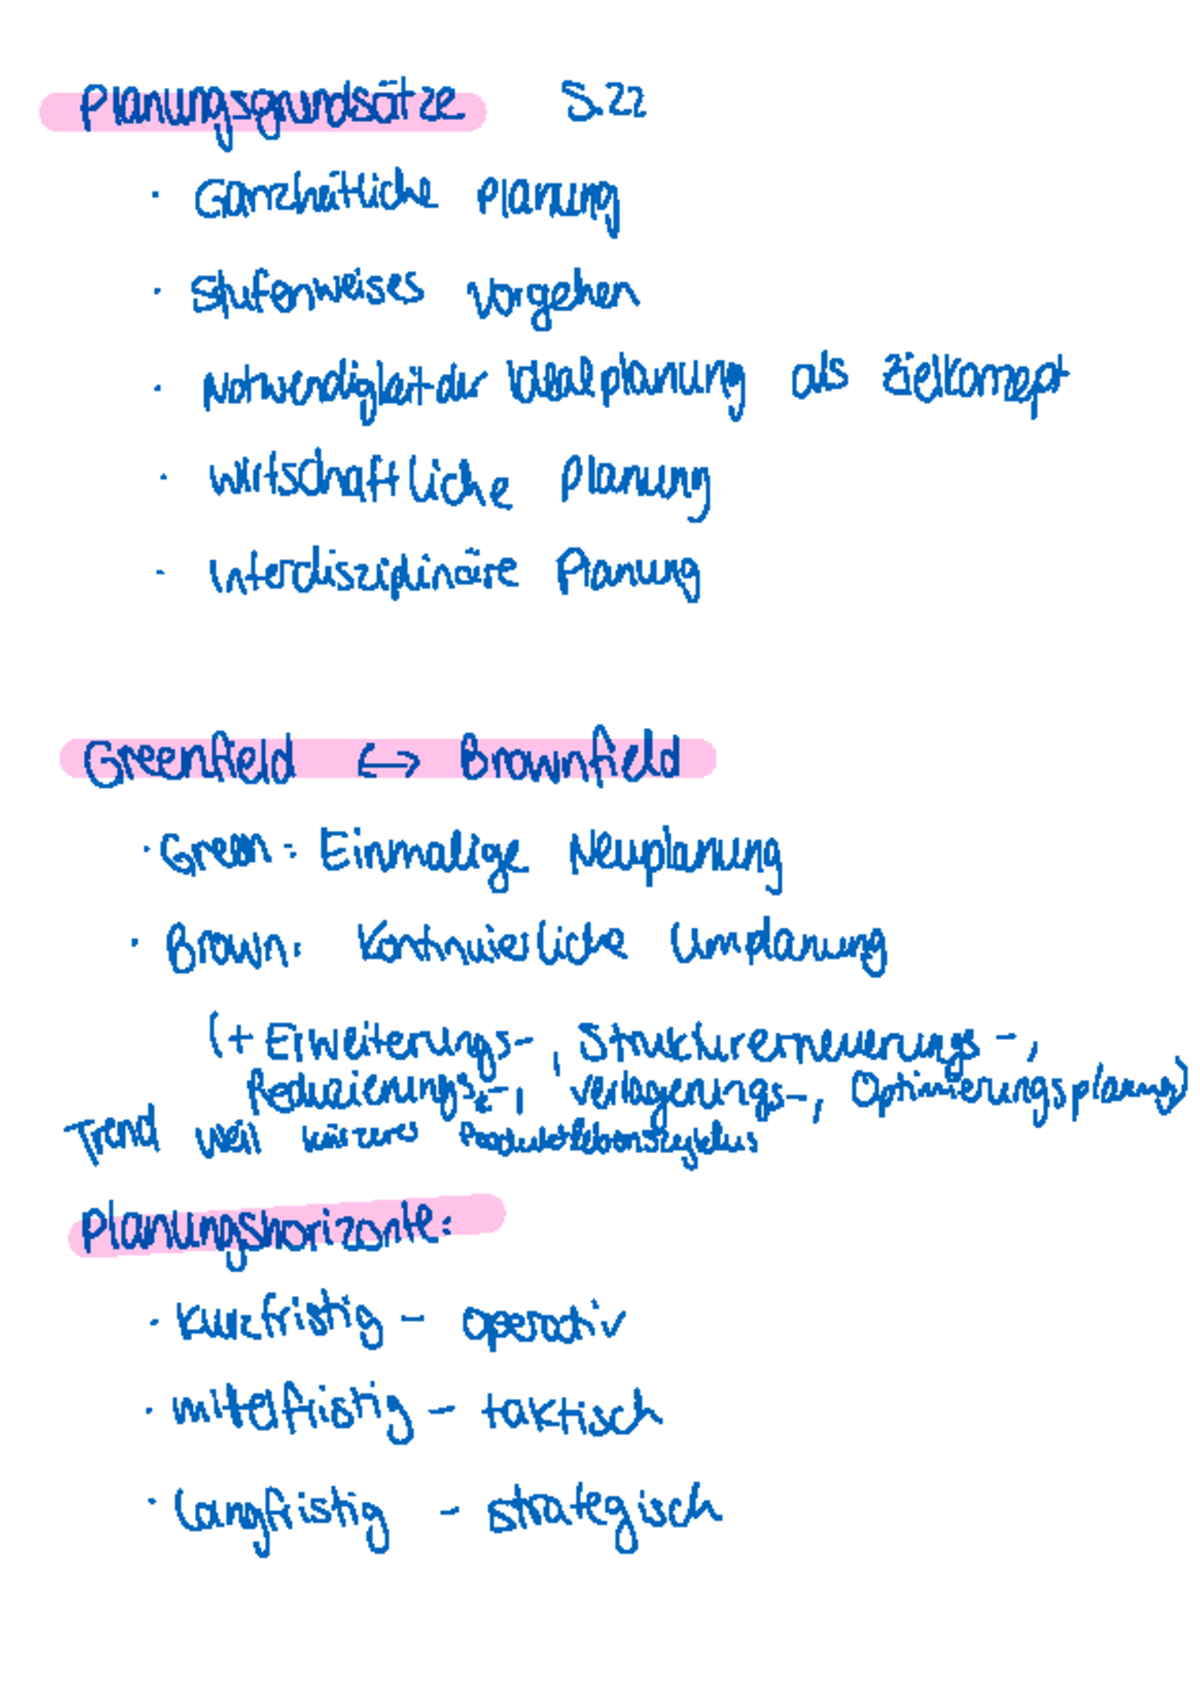 Planungsgrundsätze S.22
· Ganzheitliche Planung
· Stufenweises Vorgehen
· Notwendigkeit der Idealplanung als Zielkonzept
· Wirtschaftliche Planung
- Interdisziplinäre Planung
Greenfield ↔ Brownfield
· Green: Einmalige Neuplanung
· Brown: Kontinuierliche Umplanung
(+ Erweiterungs-, Strukturerneuerungs-,
Reduzierungs-, Verlagerungs-, Optimierungsplanung)
Trend weil kürzeres Produktlebenszyklus
Planungshorizonte:
· kurzfristig - operativ
· mittelfristig - taktisch
· langfristig - strategisch